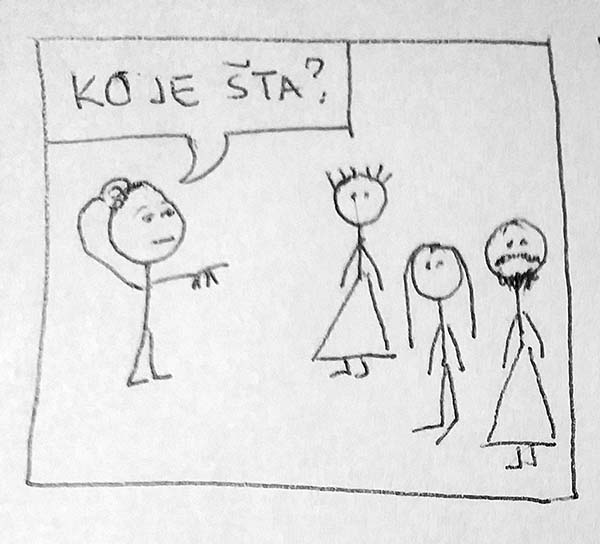 KO JE ŠTA?